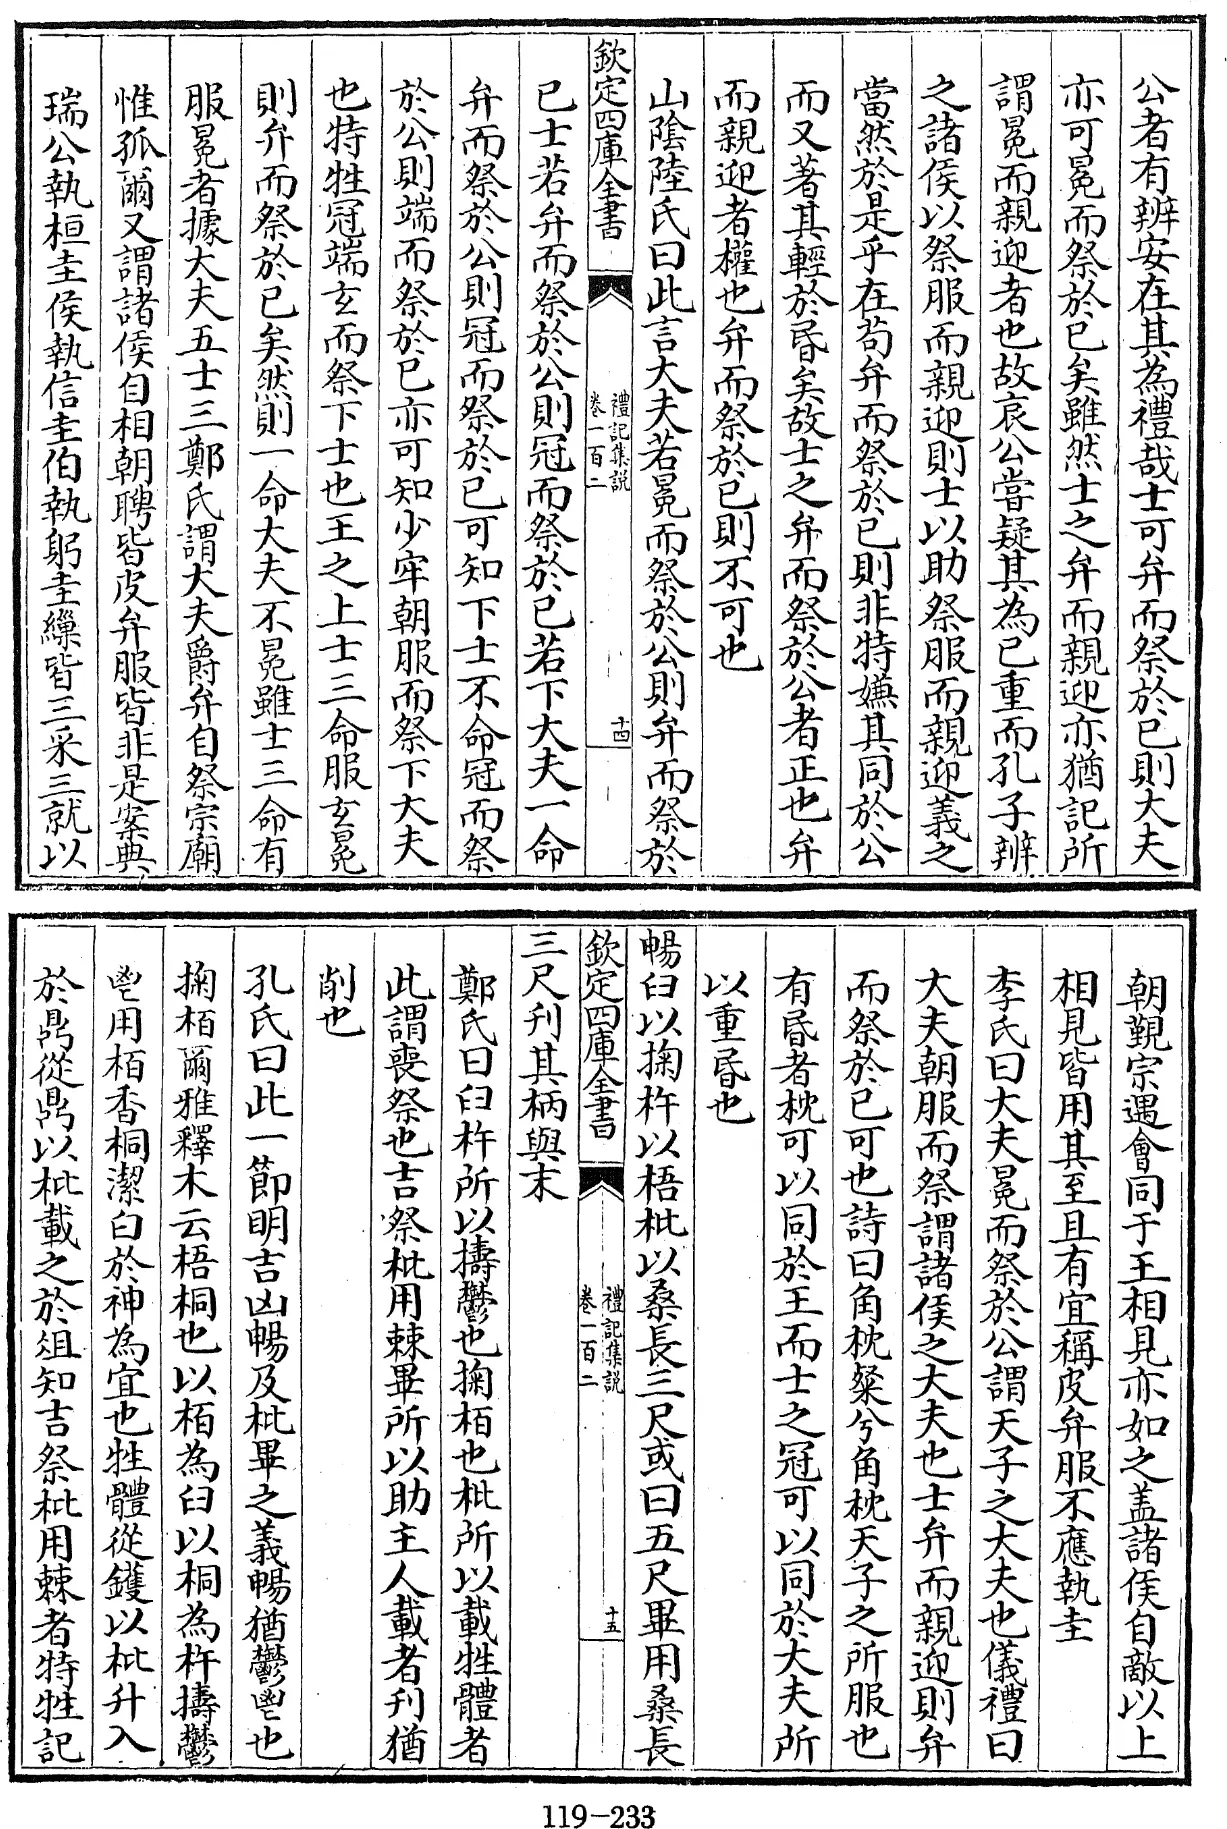 公者有辨安在其為禮哉士可弁而祭於已則大夫
亦可冕而祭於已矣雖然士之弁而親迎亦猶記所
謂冕而親迎者也故哀公嘗疑其為已重而孔子辨
之諸侯以祭服而親迎則士以助祭服而親迎義之
當然於是乎在苟弁而祭於已則非特嫌其同於公
而又著其輕於昏矣故士之弁而祭於公者正也弁
而親迎者權也弁而祭於已則不可也
山陰陸氏曰此言大夫若冕而祭於公則弁而祭於
欽定四庫全書
禮記集説
卷一百二
十四
已士若弁而祭於公則冠而祭於已若下大夫一命
弁而祭於公則冠而祭於已可知下士不命冠而祭
於公則端而祭於已亦可知少牢朝服而祭下大夫
也特牲冠端玄而祭下士也王之上士三命服玄冕
則弁而祭於已矣然則一命大夫不冕雖士三命有
服冕者據大夫五士三鄭氏謂大夫爵弁自祭宗廟
惟孤爾又謂諸侯自相朝聘皆皮弁服皆非是案典
瑞公執桓圭侯執信圭伯執躬圭繅皆三采三就以
朝覲宗遇會同于王相見亦如之蓋諸侯自敵以上
相見皆用其至且有宜稱皮弁服不應執圭
李氏曰大夫冕而祭於公謂天子之大夫也儀禮曰
大夫朝服而祭謂諸侯之大夫也士弁而親迎則弁
而祭於已可也詩曰角枕粲兮角枕天子之所服也
有昏者枕可以同於王而士之冠可以同於大夫所
以重昏也
暢臼以掬杵以梧枇以桑長三尺或曰五尺畢用桑長
欽定四庫全書
禮記集説
卷一百二
十五
三尺刋其柄與末
鄭氏曰臼杵所以擣鬱也掬栢也枇所以載牲體者
此謂喪祭也吉祭枇用棘畢所以助主人載者刋猶
削也
孔氏曰此一節明吉凶暢及枇畢之義暢猶鬱鬯也
掬栢爾雅釋木云梧桐也以栢為臼以桐為杵擣鬱
鬯用栢香桐潔白於神為宜也牲體從鑊以枇升入
於鼎從鼎以枇載之於俎知吉祭枇用棘者特牲記
119-233